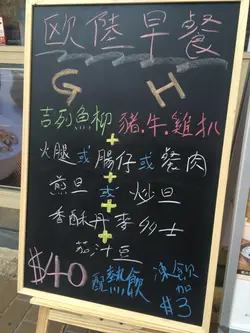 歐陸早餐
G H
吉列魚柳 豬.牛.雞扒
+
火腿 或 腸仔 或 餐肉
+
煎旦 或 炒旦
+
香酥丹麥多士
+
茄汁豆
$40 配熱飲 凍飲加$3